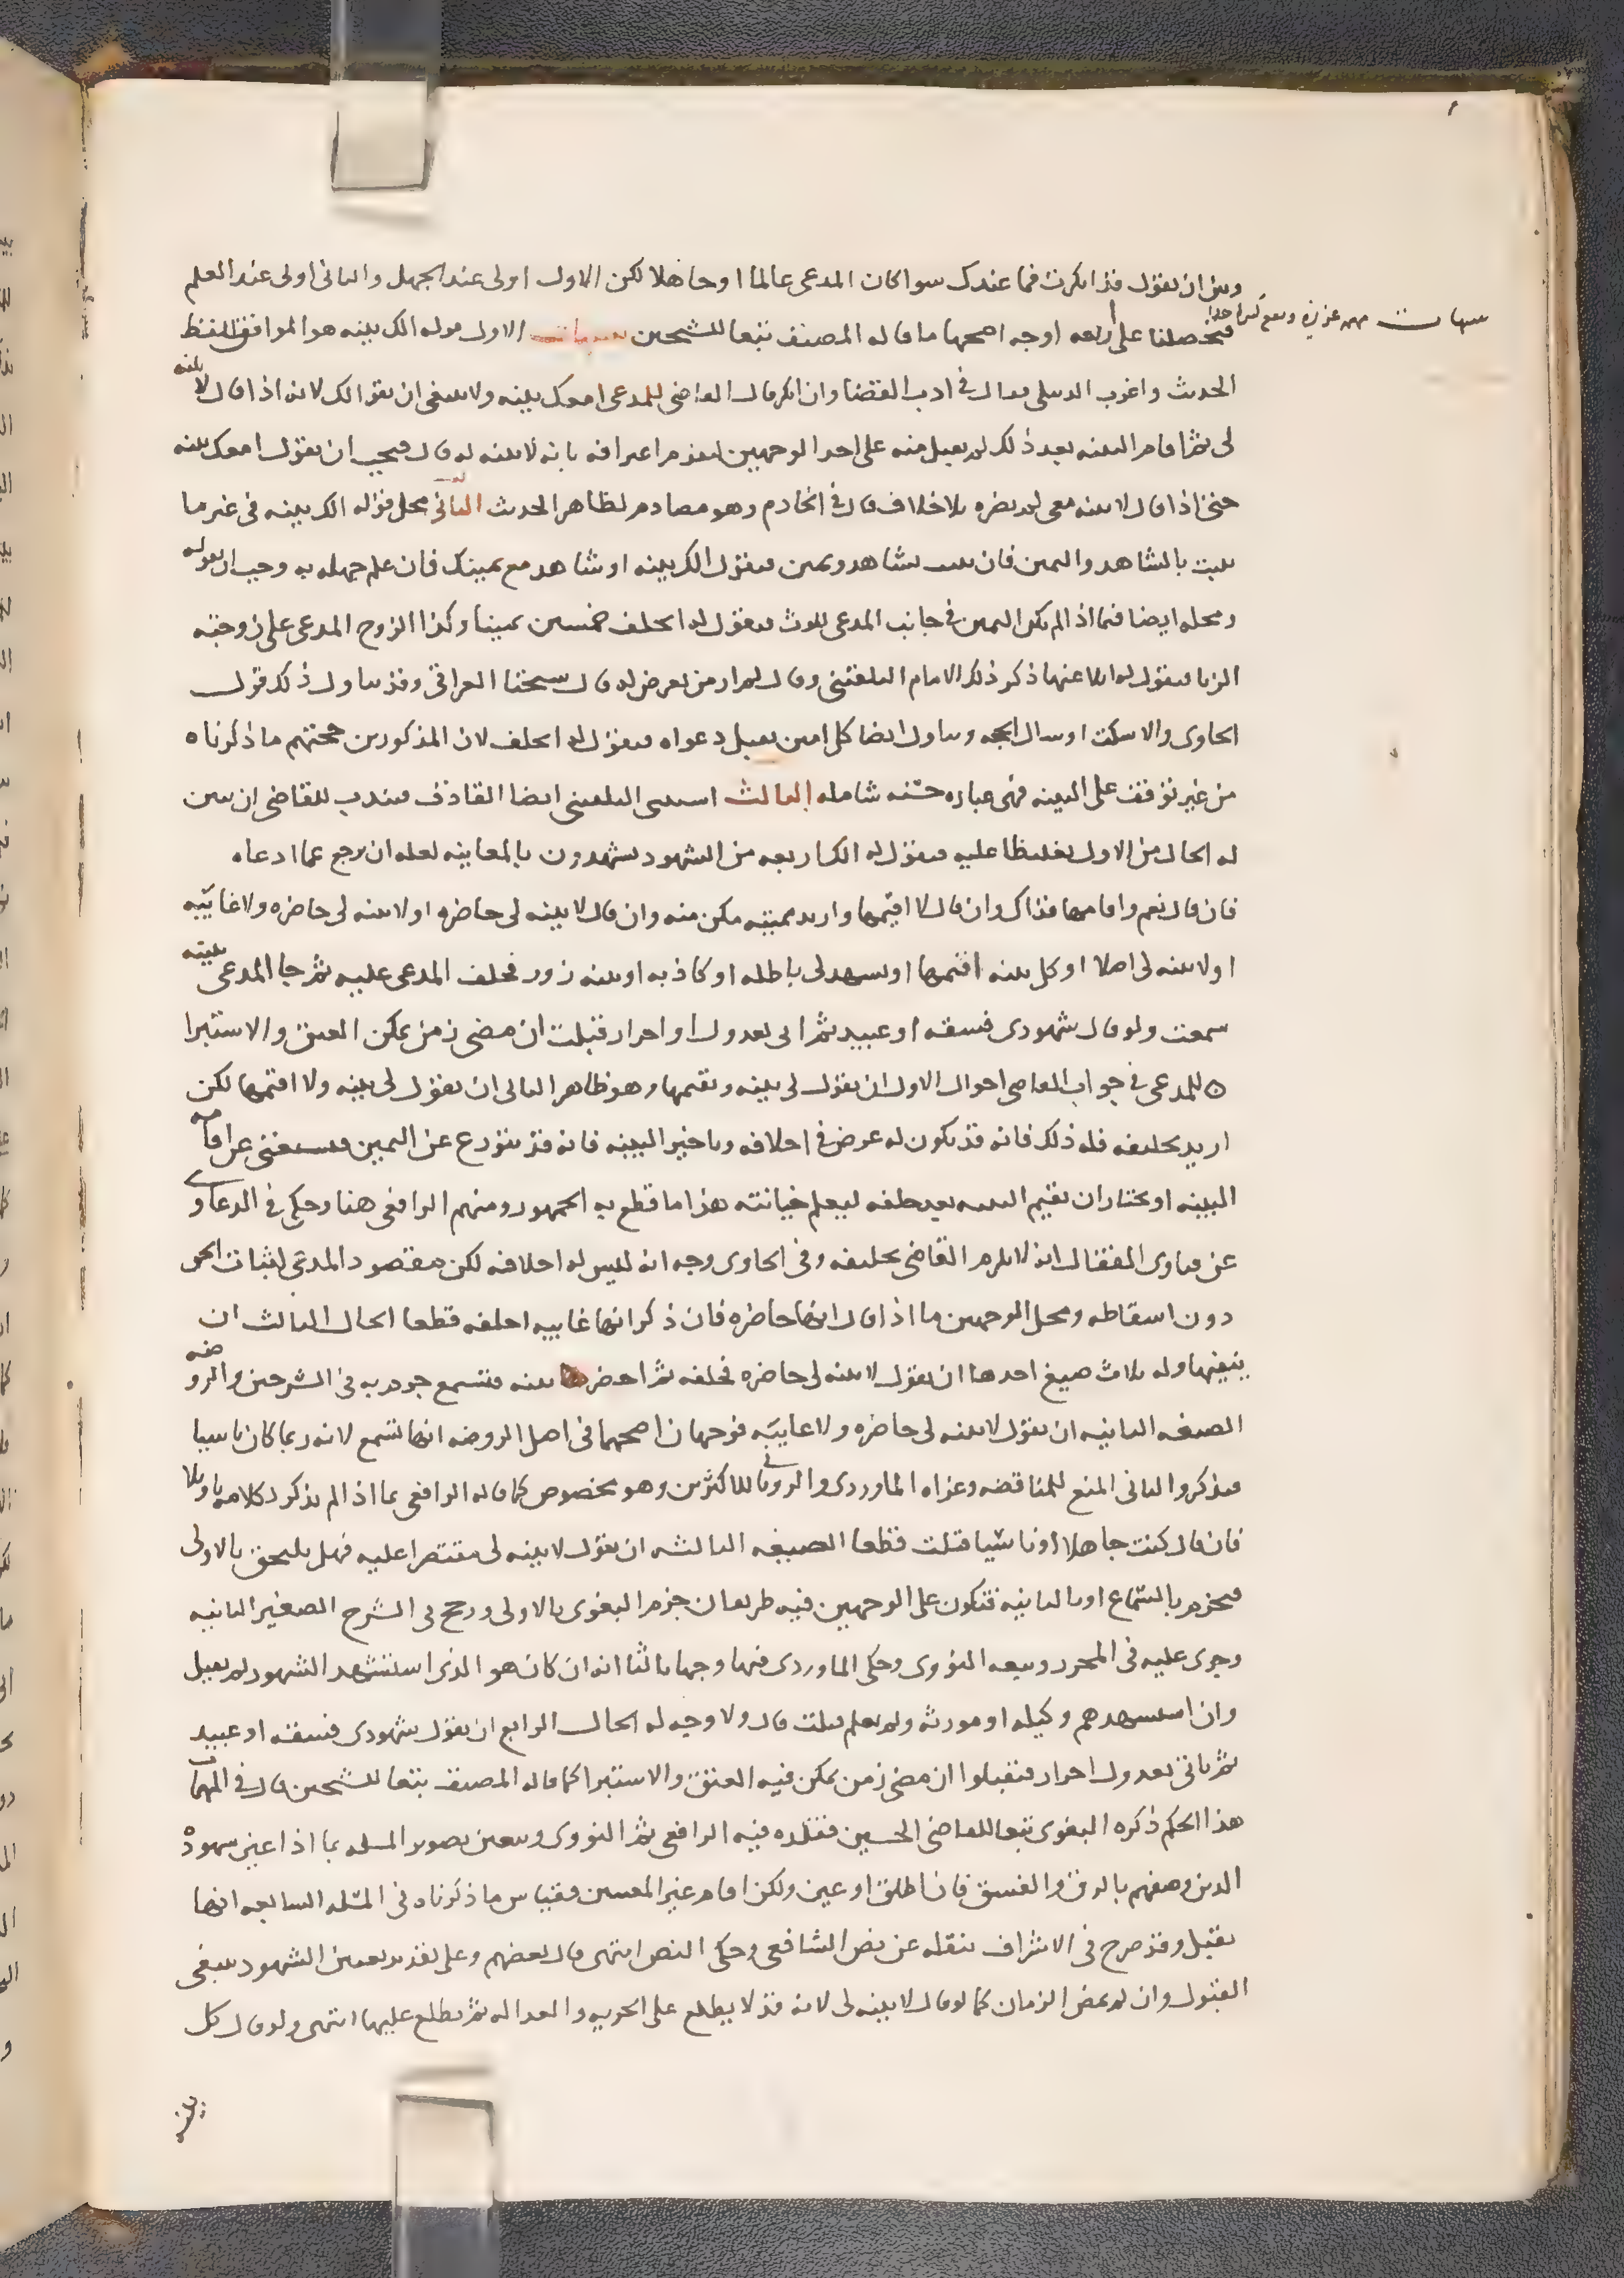 وبين ان يقول قد انكرت فما عندك سوا كان المدعي عالما او جاهلا لكن الاول اولى عند الجهل والثاني اولى عند العلم
فتحصلنا على اربعه اوجه اصحها ما قاله المصنف تبعا للشيخين تنبيهات الاول قوله الك بينه هو الموافق للفظ
الحديث واغرب الدبيلي فقال في ادب القضا وان انكر قال القاضي للمدعي امعك بينه ولا ينبغي ان يقول الك لانه اذا قال لا بينه
لي ثم اقام البينه بعد ذلك لم يقبل منه على احد الوجهين لتقدم اعترافه بانه لا بينه له قال فيجب ان يقول امعك بينه
حتى اذا قال لا بينه معي لم يضره بلا خلاف قال في الخادم وهو مصادم لظاهر الحديث الثاني محل قوله الك بينه في غير ما
يثبت بالشاهد واليمين فان ثبت بشاهد ويمين فيقول الك بينه او شاهد مع يمينك فان علم جهله به وجب ان يقوله
ومحله ايضا فيما اذا لم يكن اليمين في جانب المدعي للوث فيقول له اتحلف خمسين يمينا وكذا الزوج المدعي على زوجته
الزنا فيقول له اتلاعنها ذكر ذلك الامام البلقيني وقال لم ار من تعرض له قال شيخنا العراقي وقد يتناول ذلك قول
الحاوي والا سكت او سال الحجه ويتناول ايضا كل امين يقبل دعواه فيقول له اتحلف لان المذكورين حجتهم ما ذكرناه
من غير توقف على البينه فهي عباره حسنه شامله الثالث استثنى البلقيني ايضا القاذف فيندب للقاضي ان يبين
له الحال من الاول تغليظا عليه فيقول له الك اربعه من الشهود يشهدون بالمعاينه لعله ان يرجع عما ادعاه
فان قال نعم واقامها فذاك وان قال لا اقيمها واريد يمينه مكن منه وان قال لا بينه لي حاضره او لا بينه لي حاضره ولا غايبه
او لا بينه لي اصلا او كل بينه اقيمها او تشهد لي باطله او كاذبه او بينه زور فحلف المدعى عليه ثم جا المدعي ببينه
سمعت ولو قال شهودي فسقه او عبيد ثم اتى بعدول او احرار قبلت ان مضى زمن يمكن العتق والاستبرا
للمدعي في جواب القاضي احوال الاول ان يقول لي بينه ويقيمها وهو ظاهر الثاني ان يقول لي بينه ولا اقيمها لكن
اريد تحليفه فله ذلك فانه قد يكون له غرض في احلافه وتاخير البينه فانه قد يتورع عن اليمين فيستغني عن اقامه
البينه او يختار ان يقيم البينه بعد حلفه ليعلم خيانته هذا ما قطع به الجمهور ومنهم الرافعي هنا وحكى في الدعاوي
عن فتاوى القفال انه لا يلزم القاضي تحليفه وفي الحاوي وجه انه ليس له احلافه لكن مقصود المدعي اثبات الحق
دون اسقاطه ومحل الوجهين ما اذا قال انها حاضره فان ذكر انها غايبه احلفه قطعا الحال الثالث ان
ينفيها وله ثلاث صيغ احدها ان يقول لا بينه لي حاضره فحلفه ثم احضر بينه فتسمع جزم به في الشرحين والروضه
الصيغه الثانيه ان يقول لا بينه لي حاضره ولا غايبه فوجهان اصحهما في اصل الروضه انها تسمع لانه ربما كان ناسيا
فتذكر والثاني المنع للمناقضه وعزاه الماوردي والروياني للاكثرين وهو مخصوص كما قاله الرافعي بما اذا لم يذكر لكلامه تاويلا
فان قال كنت جاهلا او ناسيا قبلت قطعا الصيغه الثالثه ان يقول لا بينه لي مقتصرا عليه فهل يلحق بالاولى
فيجزم بالسماع او بالثانيه فتكون على الوجهين فيه طريقان جزم البغوي بالاولى ورجح في الشرح الصغير الثانيه
وجرى عليه في المحرر وتبعه النووي وحكى الماوردي فيها وجها ثالثا انه ان كان هو الذي استشهد الشهود لم يقبل
وان استشهدهم وكيله او مورثه ولم يعلم قبلت قال ولا وجه له الحال الرابع ان يقول شهودي فسقه او عبيد
ثم ياتي بعدول احرار فتقبلوا ان مضى زمن يمكن فيه العتق والاستبرا كما قاله المصنف تبعا للشيخين قال في المهمات
هذا الحكم ذكره البغوي تبعا للقاضي الحسين فقلده فيه الرافعي ثم النووي ويتعين تصوير المسله بما اذا عين شهوده
الذين وصفهم بالرق والفسق فان اطلق او عين ولكن اقام غير المعينين فقياس ما ذكرناه في المسله السابقه انها
تقبل وقد صرح في الاشراف بنقله عن نص الشافعي وحكى النص انتهى قال بعضهم وعلى تقدير تعيين الشهود ينبغي
القبول وان لم يمض الزمان كما لو قال لا بينه لي لانه قد لا يطلع على الحريه والعداله ثم يطلع عليها انتهى ولو قال كل
بينه